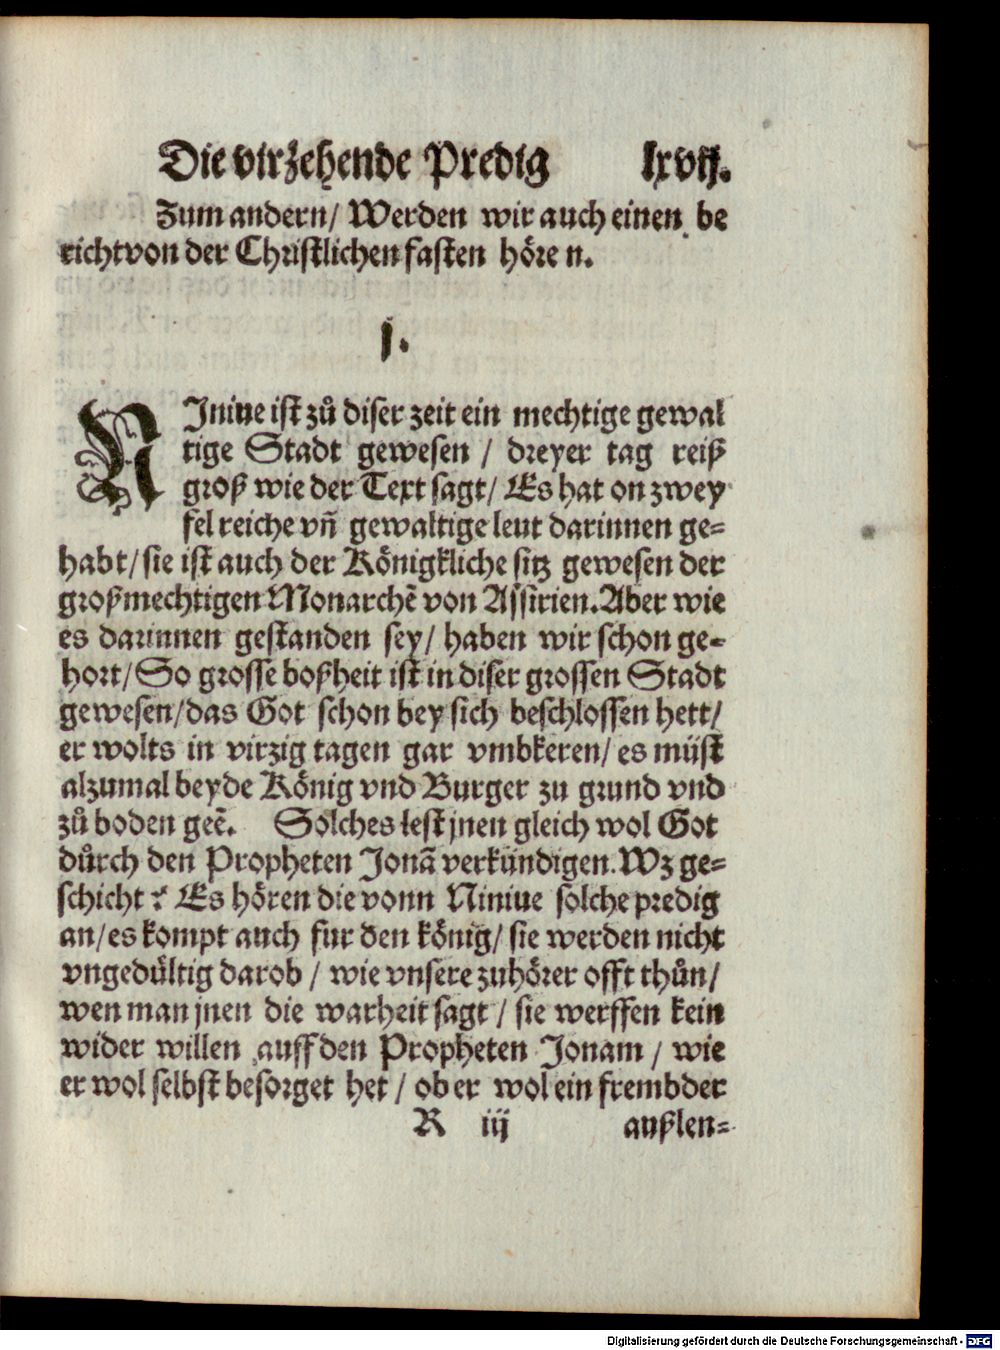 Die virzehende Predig lxvij.
Zum andern/ Werden wir auch einen be
richt von der Christlichen fasten hören.
j.
NJniue ist zů diser zeit ein mechtige gewal
tige Stadt gewesen / dreyer tag reiß
groß wie der Text sagt/ Es hat on zwey
fel reiche vñ gewaltige leut darinnen ge=
habt/ sie ist auch der Königkliche sitz gewesen der
großmechtigen Monarchẽ von Assirien. Aber wie
es darinnen gestanden sey/ haben wir schon ge=
hort/ So grosse boßheit ist in diser grossen Stadt
gewesen/ das Got schon bey sich beschlossen hett/
er wolts in virzig tagen gar vmbkeren/ es müst
alzumal beyde König vnd Burger zu grund vnd
zů boden geẽ. Solches lest jnen gleich wol Got
důrch den Propheten Jonã verkündigen. Wz ge=
schicht? Es hören die vonn Niniue solche predig
an/ es kompt auch fur den könig/ sie werden nicht
vngedültig darob / wie vnsere zuhörer offt thůn/
wen man jnen die warheit sagt / sie werffen kein
wider willen auff den Propheten Jonam / wie
er wol selbst besorget het / ob er wol ein frembder
R iij außlen=
Digitalisierung gefördert durch die Deutsche Forschungsgemeinschaft - DFG